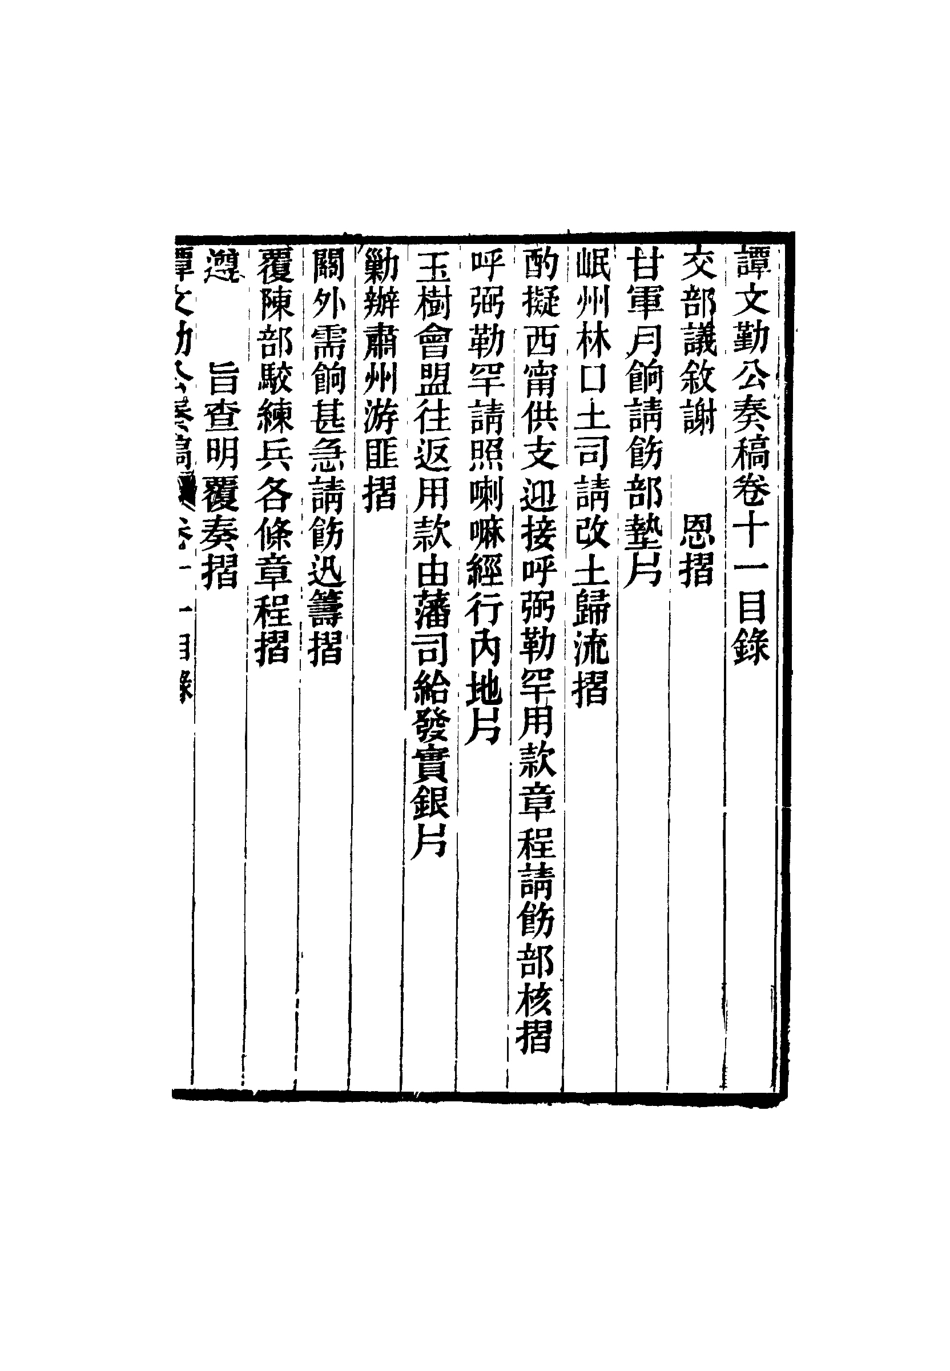 譚文勤公奏稿卷十一目錄
交部議敘謝　恩摺
甘軍月餉請飭部墊片
岷州林口土司請改土歸流摺
酌擬西甯供支迎接呼弼勒罕用款章程請飭部核摺
呼弼勒罕請照喇嘛經行內地片
玉樹會盟往返用款由藩司給發實銀片
勦辦肅州游匪摺
關外需餉甚急請飭迅籌摺
覆陳部駮練兵各條章程摺
遵　旨查明覆奏摺
譚文勤公奏稿 卷十一目錄